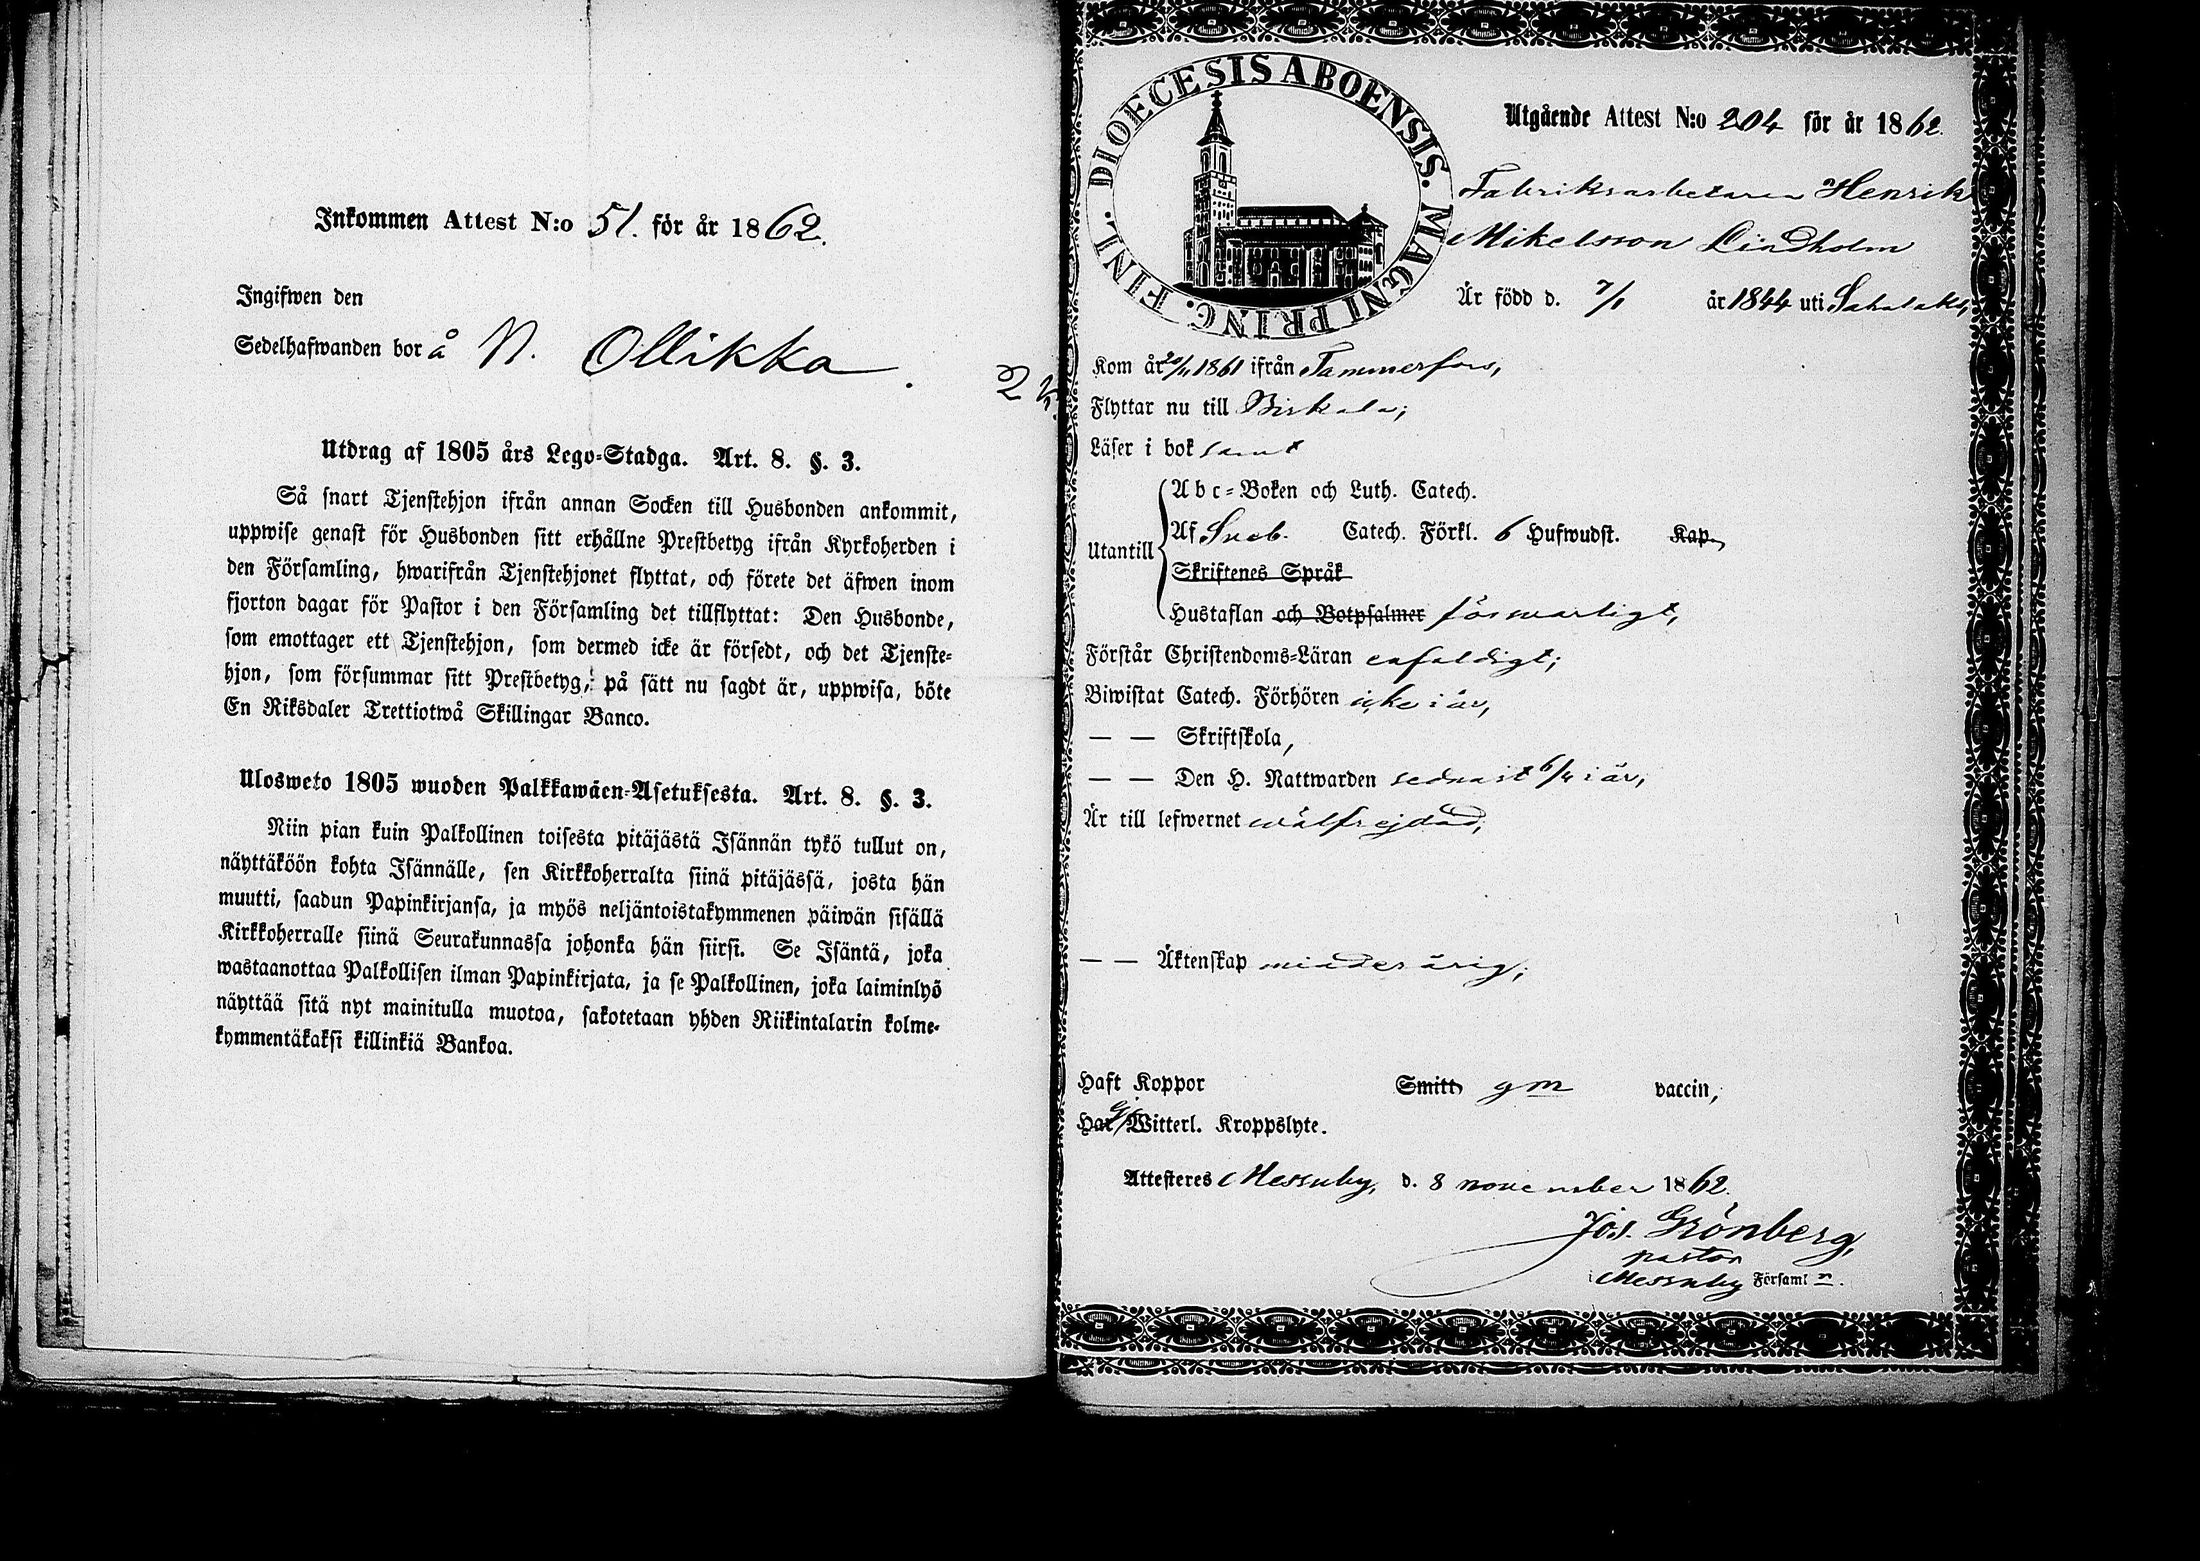 Inkommen Attest N:o 51. för år 1862.
Ingifwen den
Sedelhafwanden bor å N. Ollikka.
Utdrag af 1805 års Lego-Stadga. Art. 8. §. 3.
Så snart Tjenstehjon ifrån annan Socken till Husbonden ankommit,
uppwise genast för Husbonden sitt erhållne Prestbetyg ifrån Kyrkoherden i
den Församling, hwarifrån Tjenstehjonet flyttat, och förete det äfwen inom
fjorton dagar för Pastor i den Församling det tillflyttat: Den Husbonde,
som emottager ett Tjenstehjon, som dermed icke är försedt, och det Tjenste-
hjon, som försummar sitt Prestbetyg, på sätt nu sagdt är, uppwisa, böte
En Riksdaler Trettiotwå Skillingar Banco.
Ulosweto 1805 wuoden Palkkawäen-Asetuksesta. Art. 8. §. 3.
Niin pian kuin Palkollinen toisesta pitäjästä Isännän tykö tullut on,
näyttäköön kohta Isännälle, sen Kirkkoherralta siinä pitäjässä, josta hän
muutti, saadun Papinkirjansa, ja myös neljäntoistakymmenen päiwän sisällä
Kirkkoherralle siinä Seurakunnassa johonka hän siirsi. Se Isäntä, joka
wastaanottaa Palkollisen ilman Papinkirjata, ja se Palkollinen, joka laiminlyö
näyttää sitä nyt mainitulla muotoa, sakotetaan yhden Riikintalarin kolme-
kymmentäkaksi killinkiä Bankoa.
FINL. DIOECESIS ABOENSIS. MAGNI PRINC.
Utgående Attest N:o 204 för år 1862.
Fabriksarbetaren Henrik
Mikelsson Lindholm
Är född d. 7/1 år 1844 uti Sahalaks,
Kom år 20/11 1861 ifrån Tammerfors,
Flyttar nu till Birkala;
Läser i bok samt
Utantill
Abc-Boken och Luth. Catech.
Af Sveb. Catech. Förkl. 6 Hufwudst. Kap.
Skriftenes Språk
Hustaflan och Botpsalmer förswarligt,
Förstår Christendoms-Läran enfaldigt;
Biwistat Catech. Förhören icke i år,
— — Skriftskola,
— — Den H. Nattwarden sednast 6/4 i år,
Är till lefwernet wälfrejdad,
— — Äktenskap minderårig;
Haft Koppor Smitt gm vaccin,
Har Witterl. Kroppslyte.
Attesteres Messuby, d. 8 november 1862.
Jos. Grönberg,
pastor
i Messuby Förs​aml n.